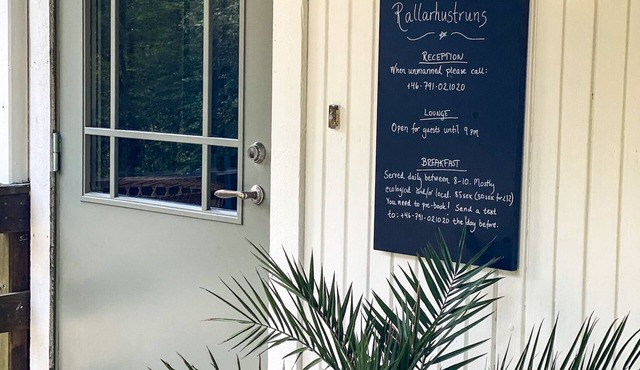 Rallarhustruns
RECEPTION
When unmanned please call:
+46-791-021020
LOUNGE
Open for guests until 9 pm
BREAKFAST
Served daily between 8-10. Mostly
ecological and/or local. 85 SEK (50 SEK for <12)
You need to pre-book! Send a text
to: +46-791-021020 the day before.